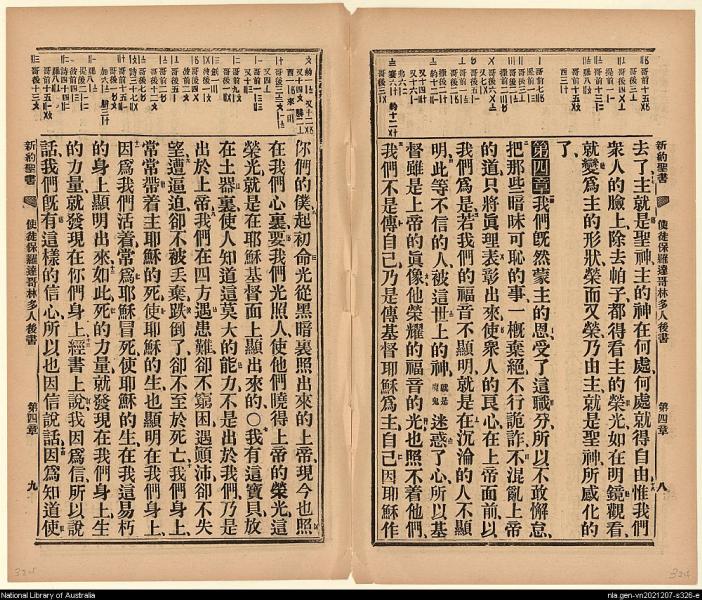 新約聖書 使徒保羅達哥林多人後書 第四章 八
去了主就是聖神主的神在何處何處就得自由惟我們
衆人的臉上除去帕子都得看主的榮光如在明鏡觀看、
就變爲主的形狀榮而又榮乃由主就是聖神所感化的
了、
第四章我們旣然蒙主的恩受了這職分所以不敢懈怠、
把那些暗昧可恥的事一槪棄絕不行詭詐不混亂上帝
的道只將眞理表彰出來使衆人的良心在上帝面前以
我們爲是若我們的福音不顯明就是在沉淪的人不顯
明此等不信的人被這世上的神就是魔鬼迷惑了心所以基
督雖是上帝的眞像他榮耀的福音的光也照不着他們、
我們不是傳自己乃是傳基督耶穌爲主自己因耶穌作
你們的僕起初命光從黑暗裏照出來的上帝現今也照
在我們心裏要我們光照人使他們曉得上帝的榮光這
榮光就是在耶穌基督面上顯出來的○我有這寶貝放
在土器裏使人知道這莫大的能力不是出於我們乃是
出於上帝我們在四方遇患難卻不窮困遇顚沛卻不失
望遭逼迫卻不被丟棄跌倒了卻不至於死亡我們身上、
常常帶着主耶穌的死使耶穌的生也顯明在我們身上、
因爲我們活着常爲耶穌冒死使耶穌的生在我這易朽
的身上顯明出來如此死的力量就發現在我們身上生
的力量就發現在你們身上經書上說我因爲信所以說
話我們旣有這樣的信心所以也因信說話因爲知道使
新約聖書 使徒保羅達哥林多人後書 第四章 九
324
National Library of Australia
nla.gen-vn2021207-s326-e